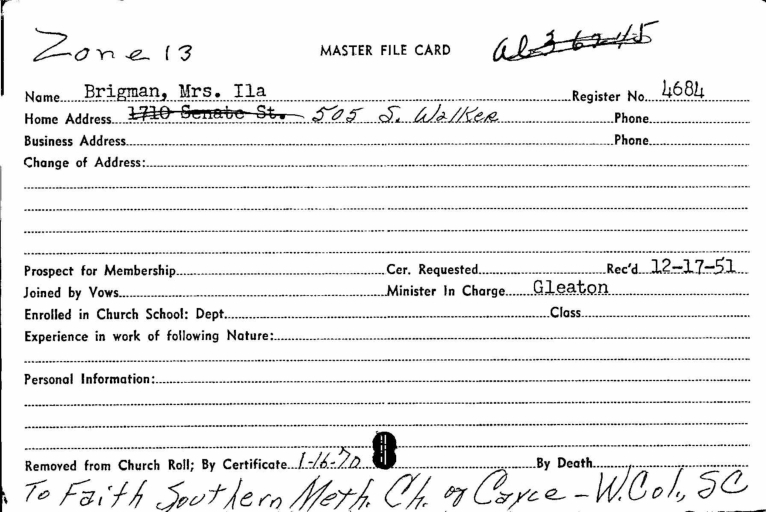 Zone 13 MASTER FILE CARD al 3 6245
Name Brigman, Mrs. Ila Register No. 4684
Home Address 1710 Senate St. 505 S. Walker Phone
Business Address Phone
Change of Address:
Prospect for Membership Cer. Requested Rec'd 12-17-51
Joined by Vows Minister In Charge Gleaton
Enrolled in Church School: Dept. Class
Experience in work of following Nature:
Personal Information:
Removed from Church Roll; By Certificate 1-16-70 By Death
To Faith Southern Meth. Ch. of Cayce - W. Col., SC